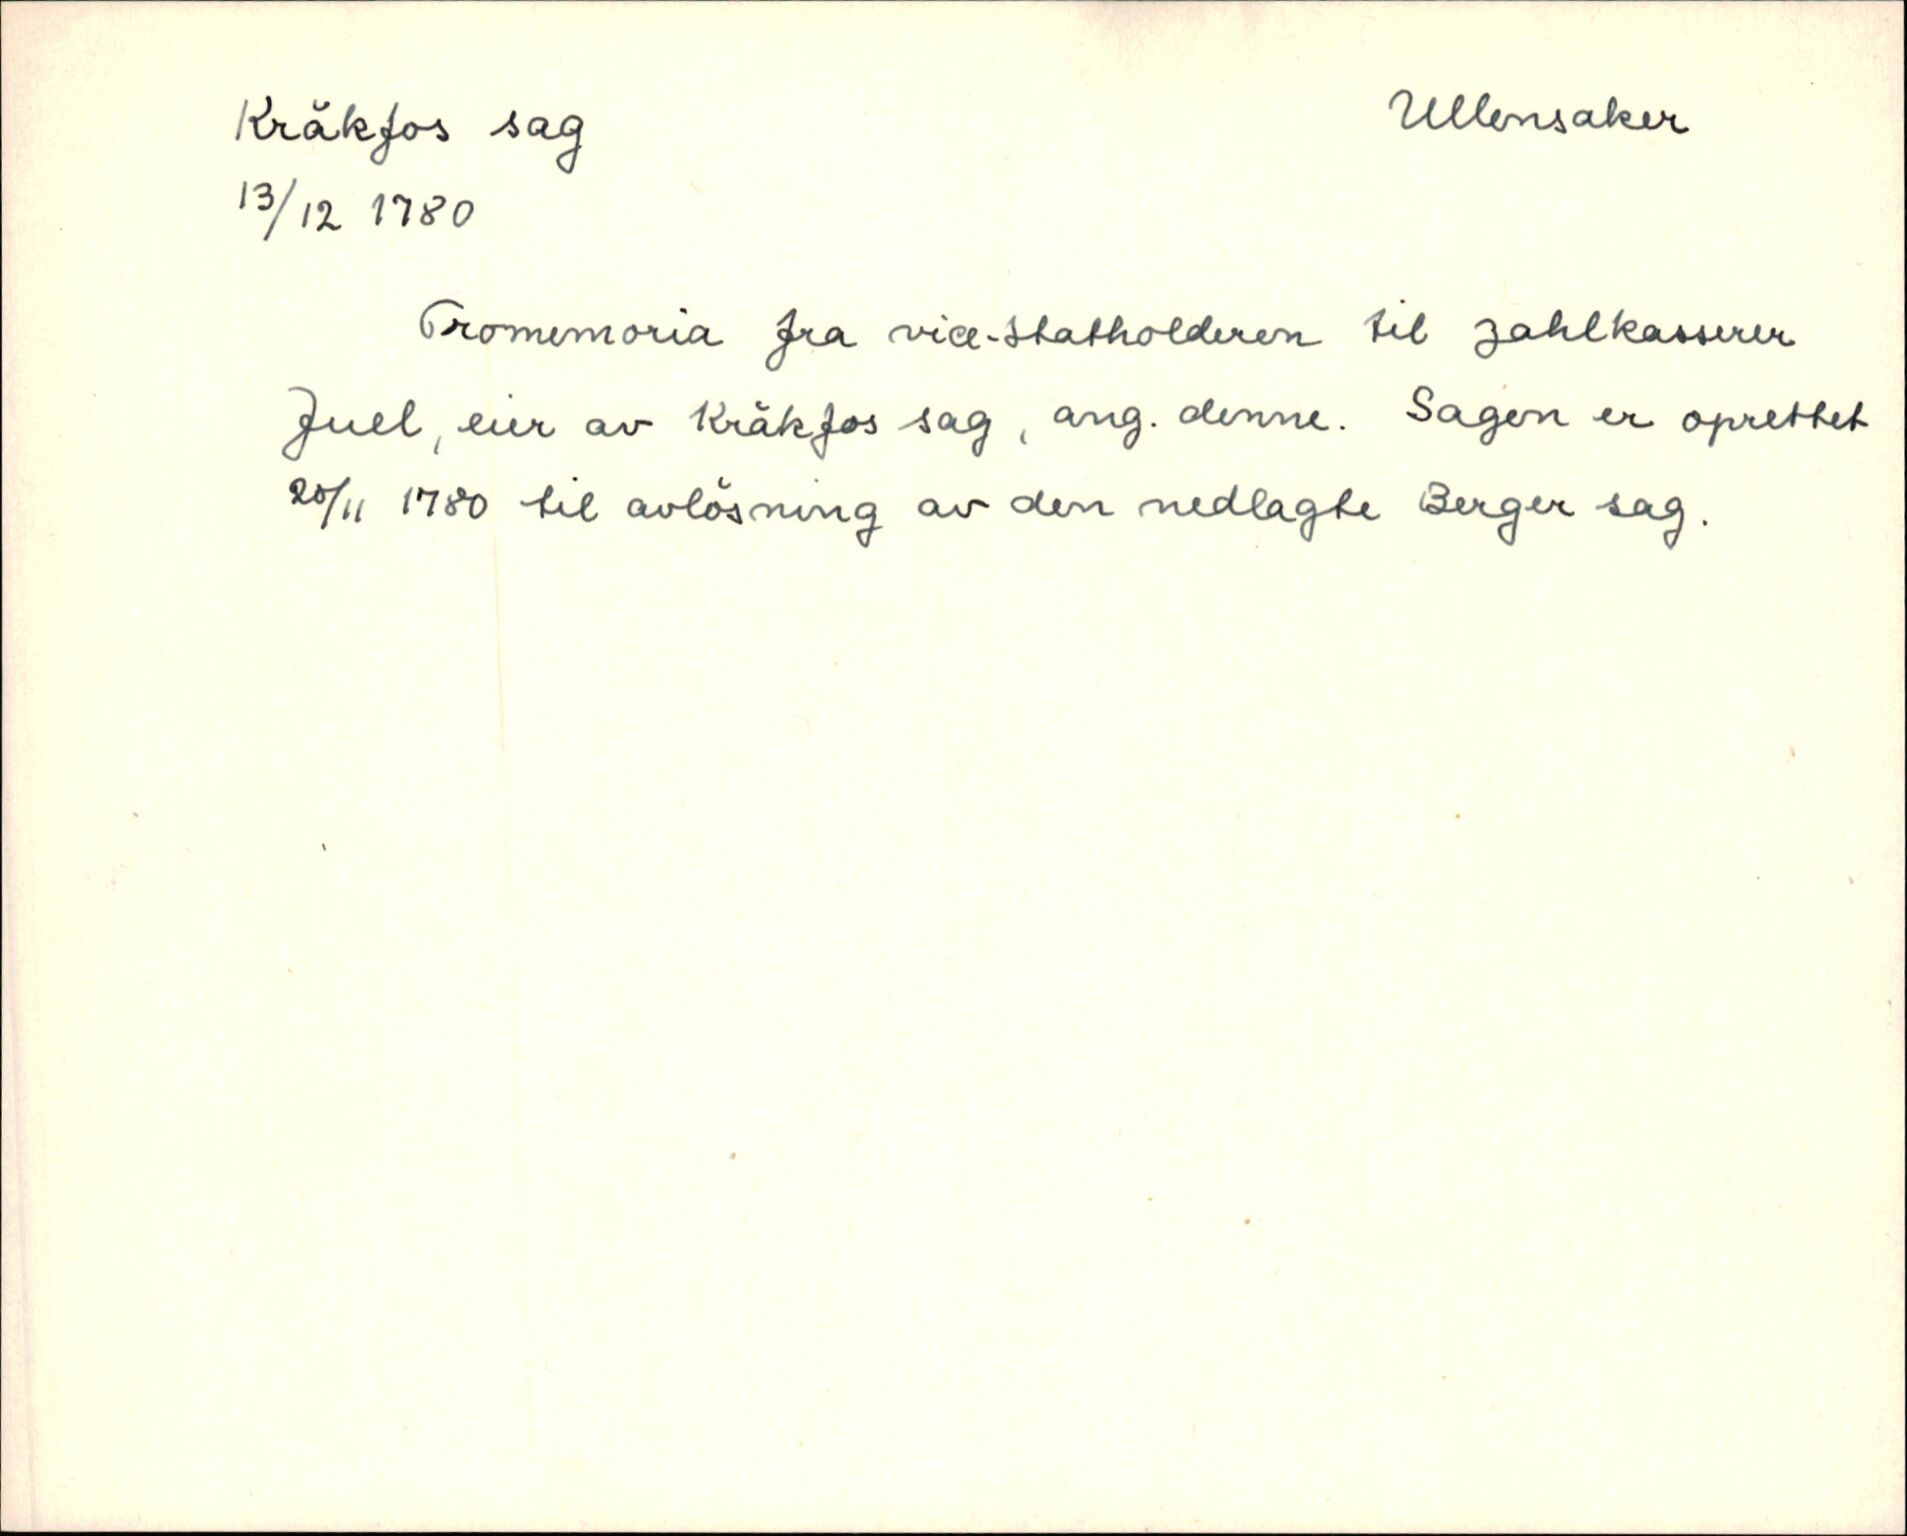 Kråkfos sag
Ullensaker
13/12 1780
Promemoria fra vice-statholderen til zahlkasserer
Juel, eier av Kråkfos sag, ang. denne. Sagen er oprettet
20/11 1780 til avlösning av den nedlagte Berger sag.